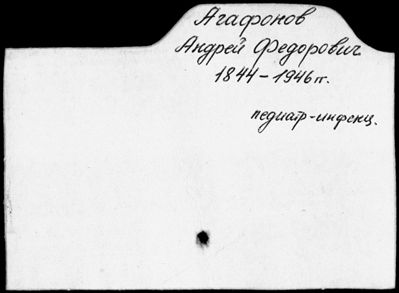 Агафонов
Андрей Федорович
1844-1946гг.
педиатр-инфекц.